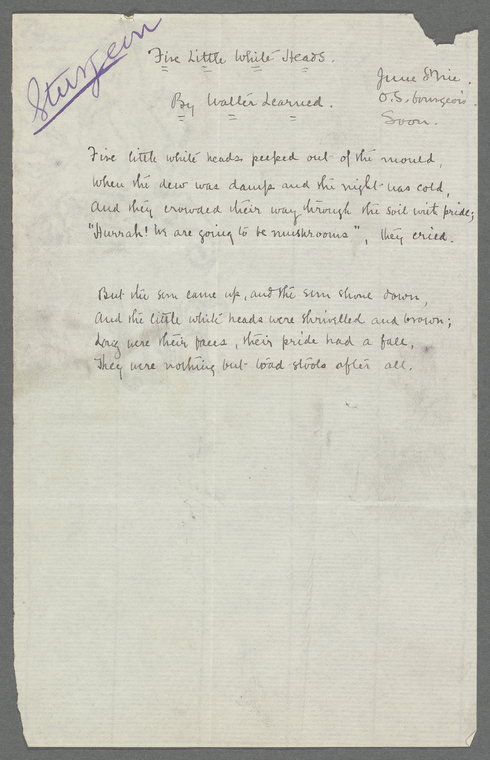 Sturgeon
Five Little White Heads.
June St Nic.
By Walter Learned.
O.S. bourgeois
Soon.
Five little white heads peeped out of the mould,
When the dew was damp and the night was cold,
And they crowded their way through the soil with pride;
"Hurrah! We are going to be mushrooms", they cried.
But the sun came up, and the sun shone down,
And the little white heads were shrivelled and brown;
Long were their faces, their pride had a fall,
They were nothing but toad-stools after all.